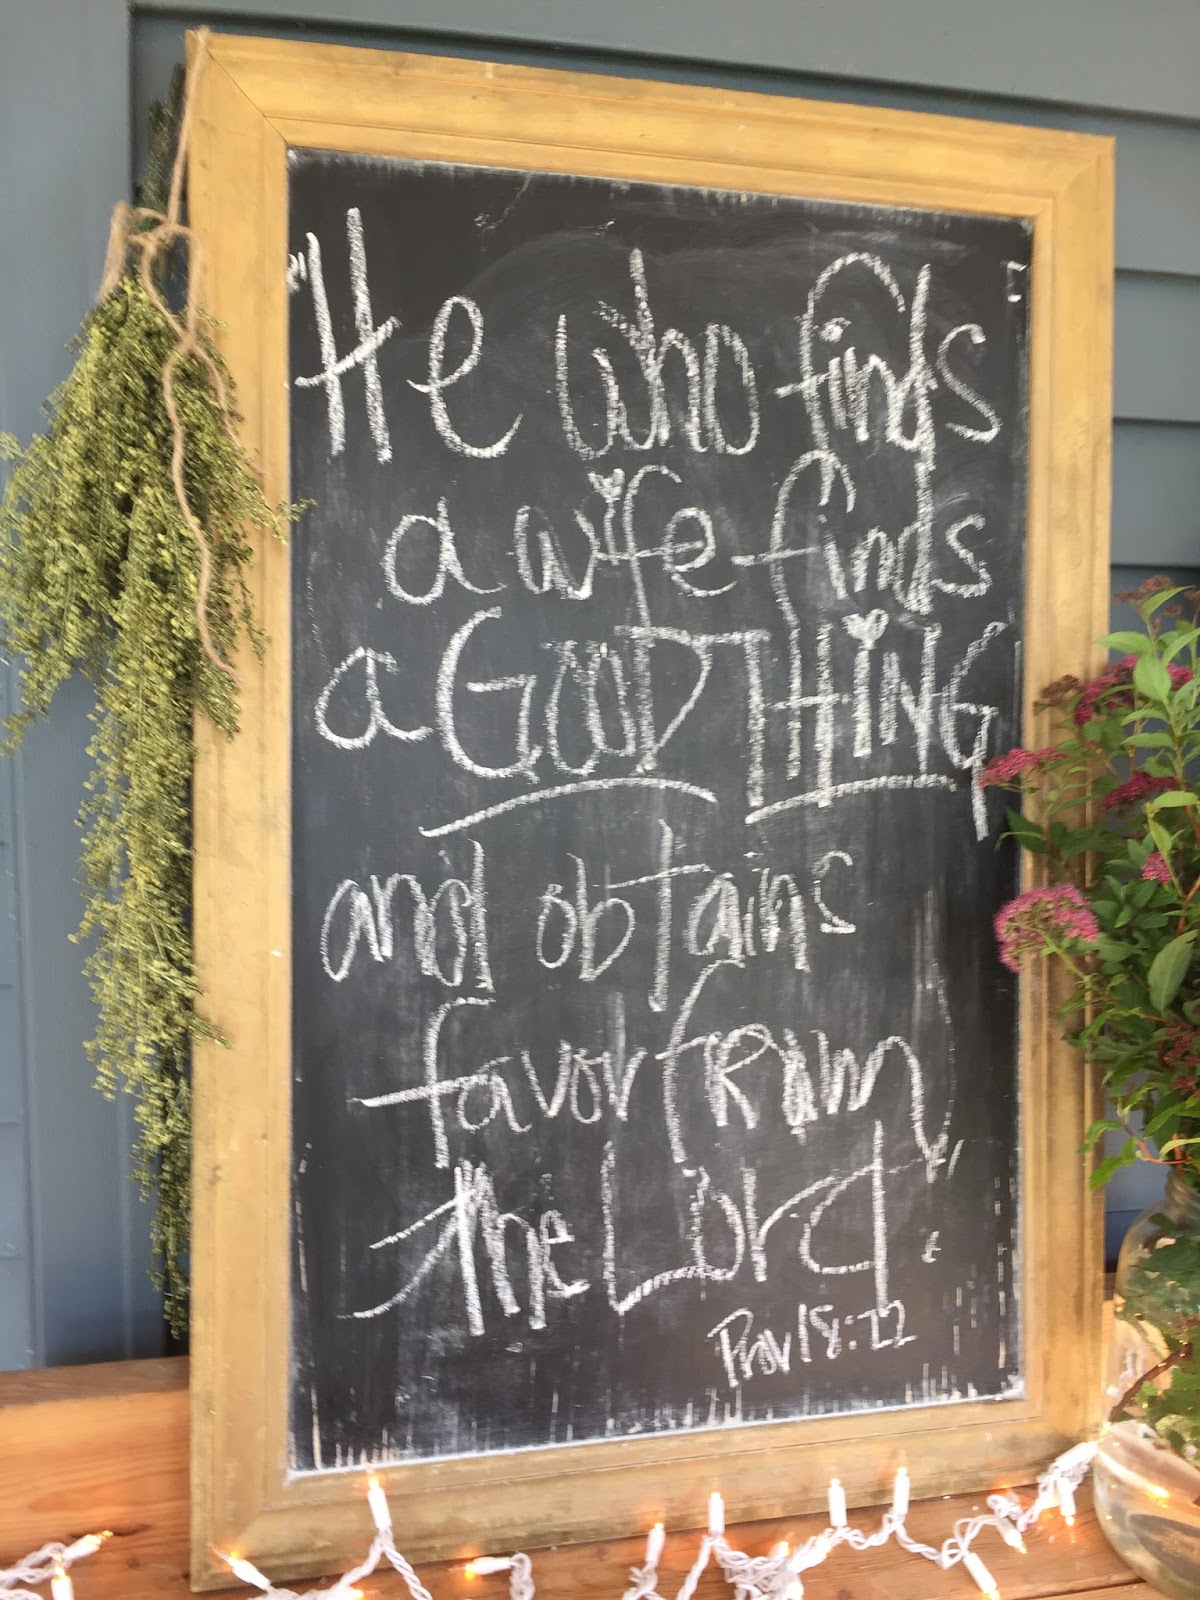 "He who finds
a wife finds
a GOOD THING
and obtains
favor from
the Lord.
Prov 18:22